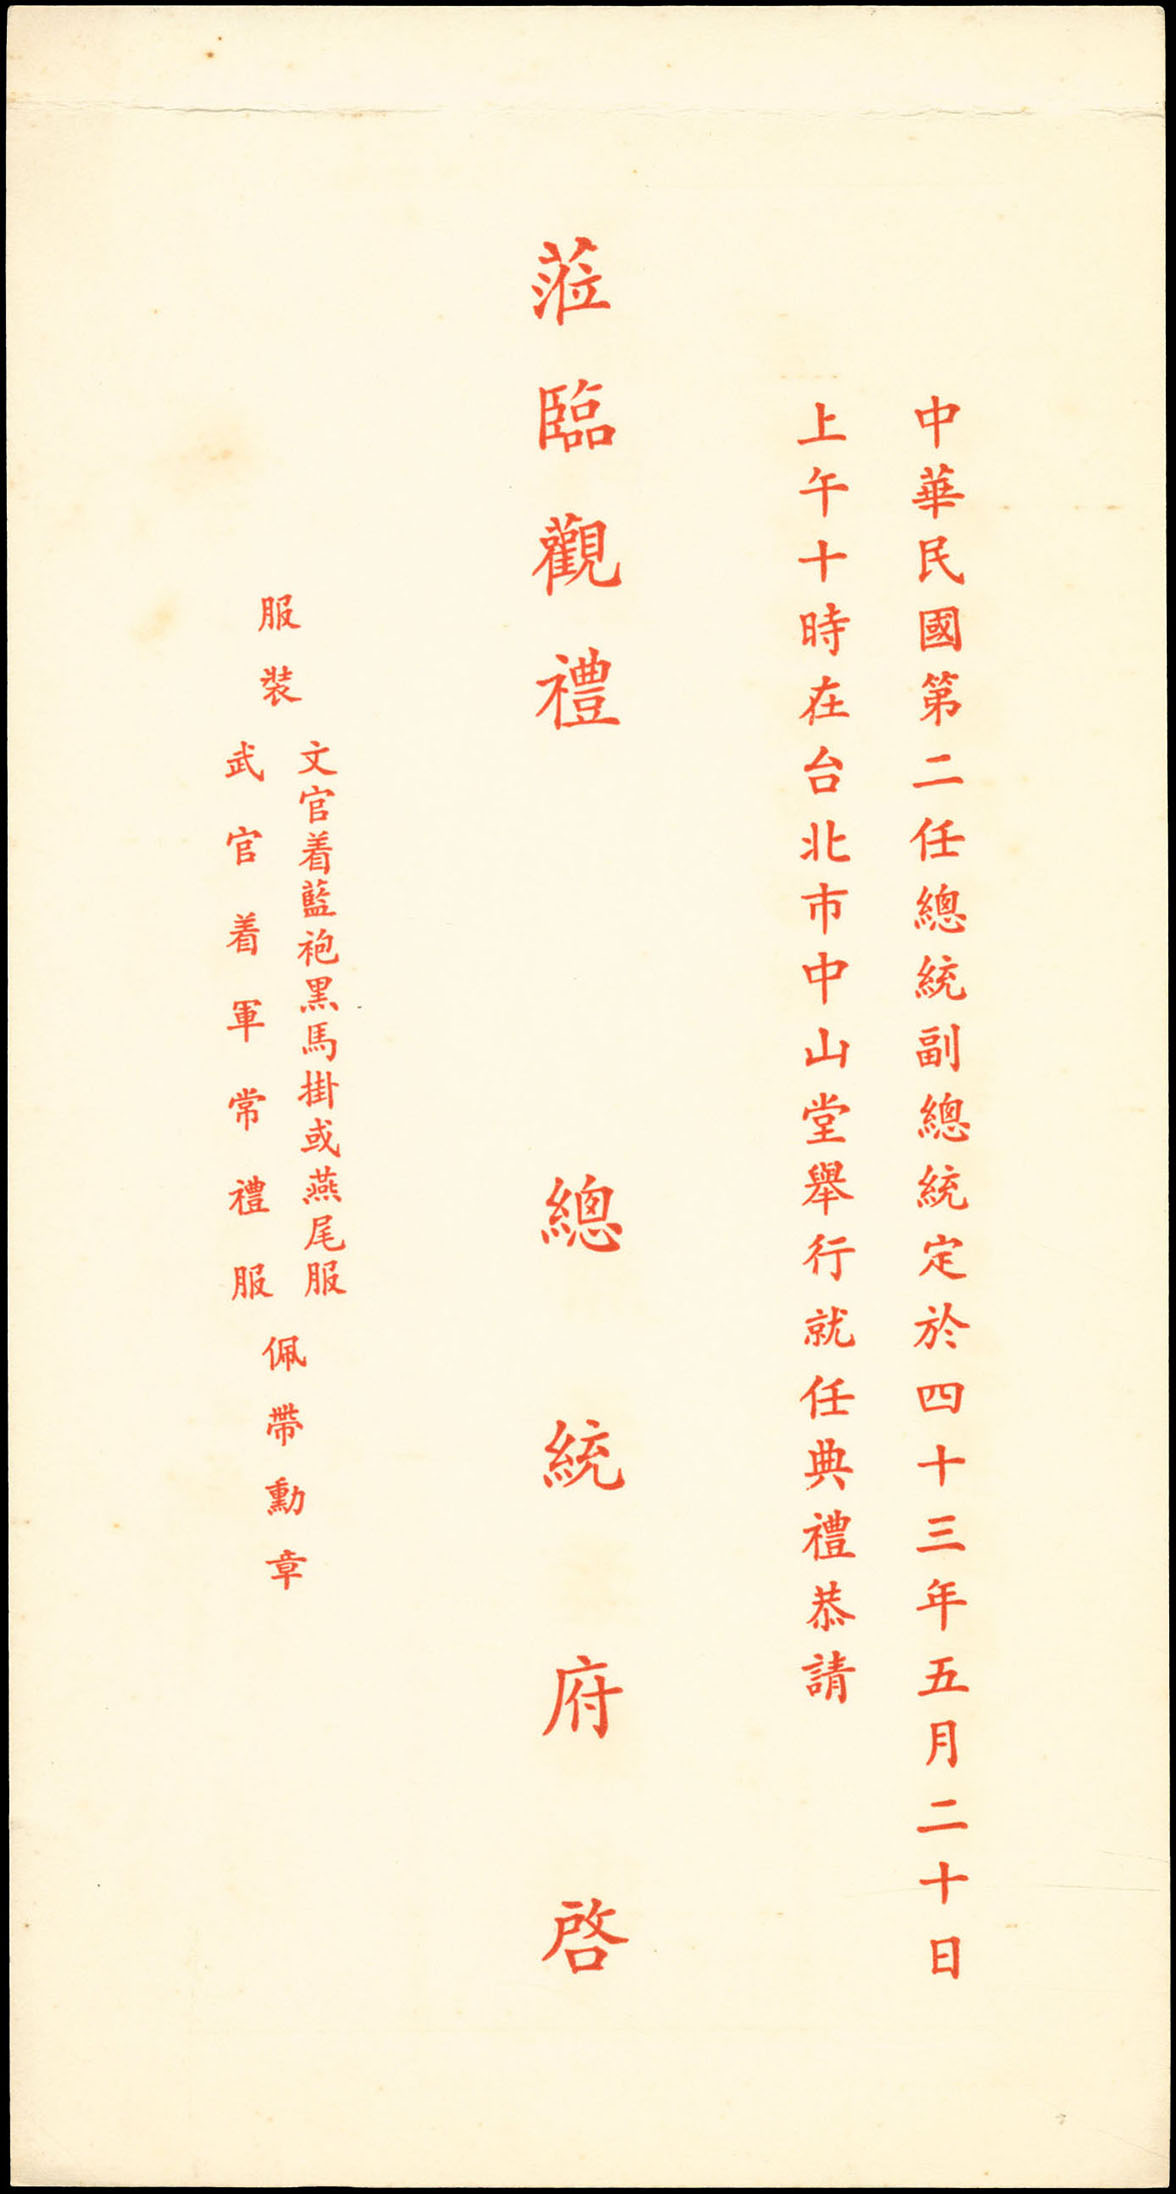 中華民國第二任總統副總統定於四十三年五月二十日
上午十時在台北市中山堂舉行就任典禮恭請
蒞臨觀禮 總統府啓
服裝
文官着藍袍黑馬掛或燕尾服
武官着軍常禮服
佩帶勳章